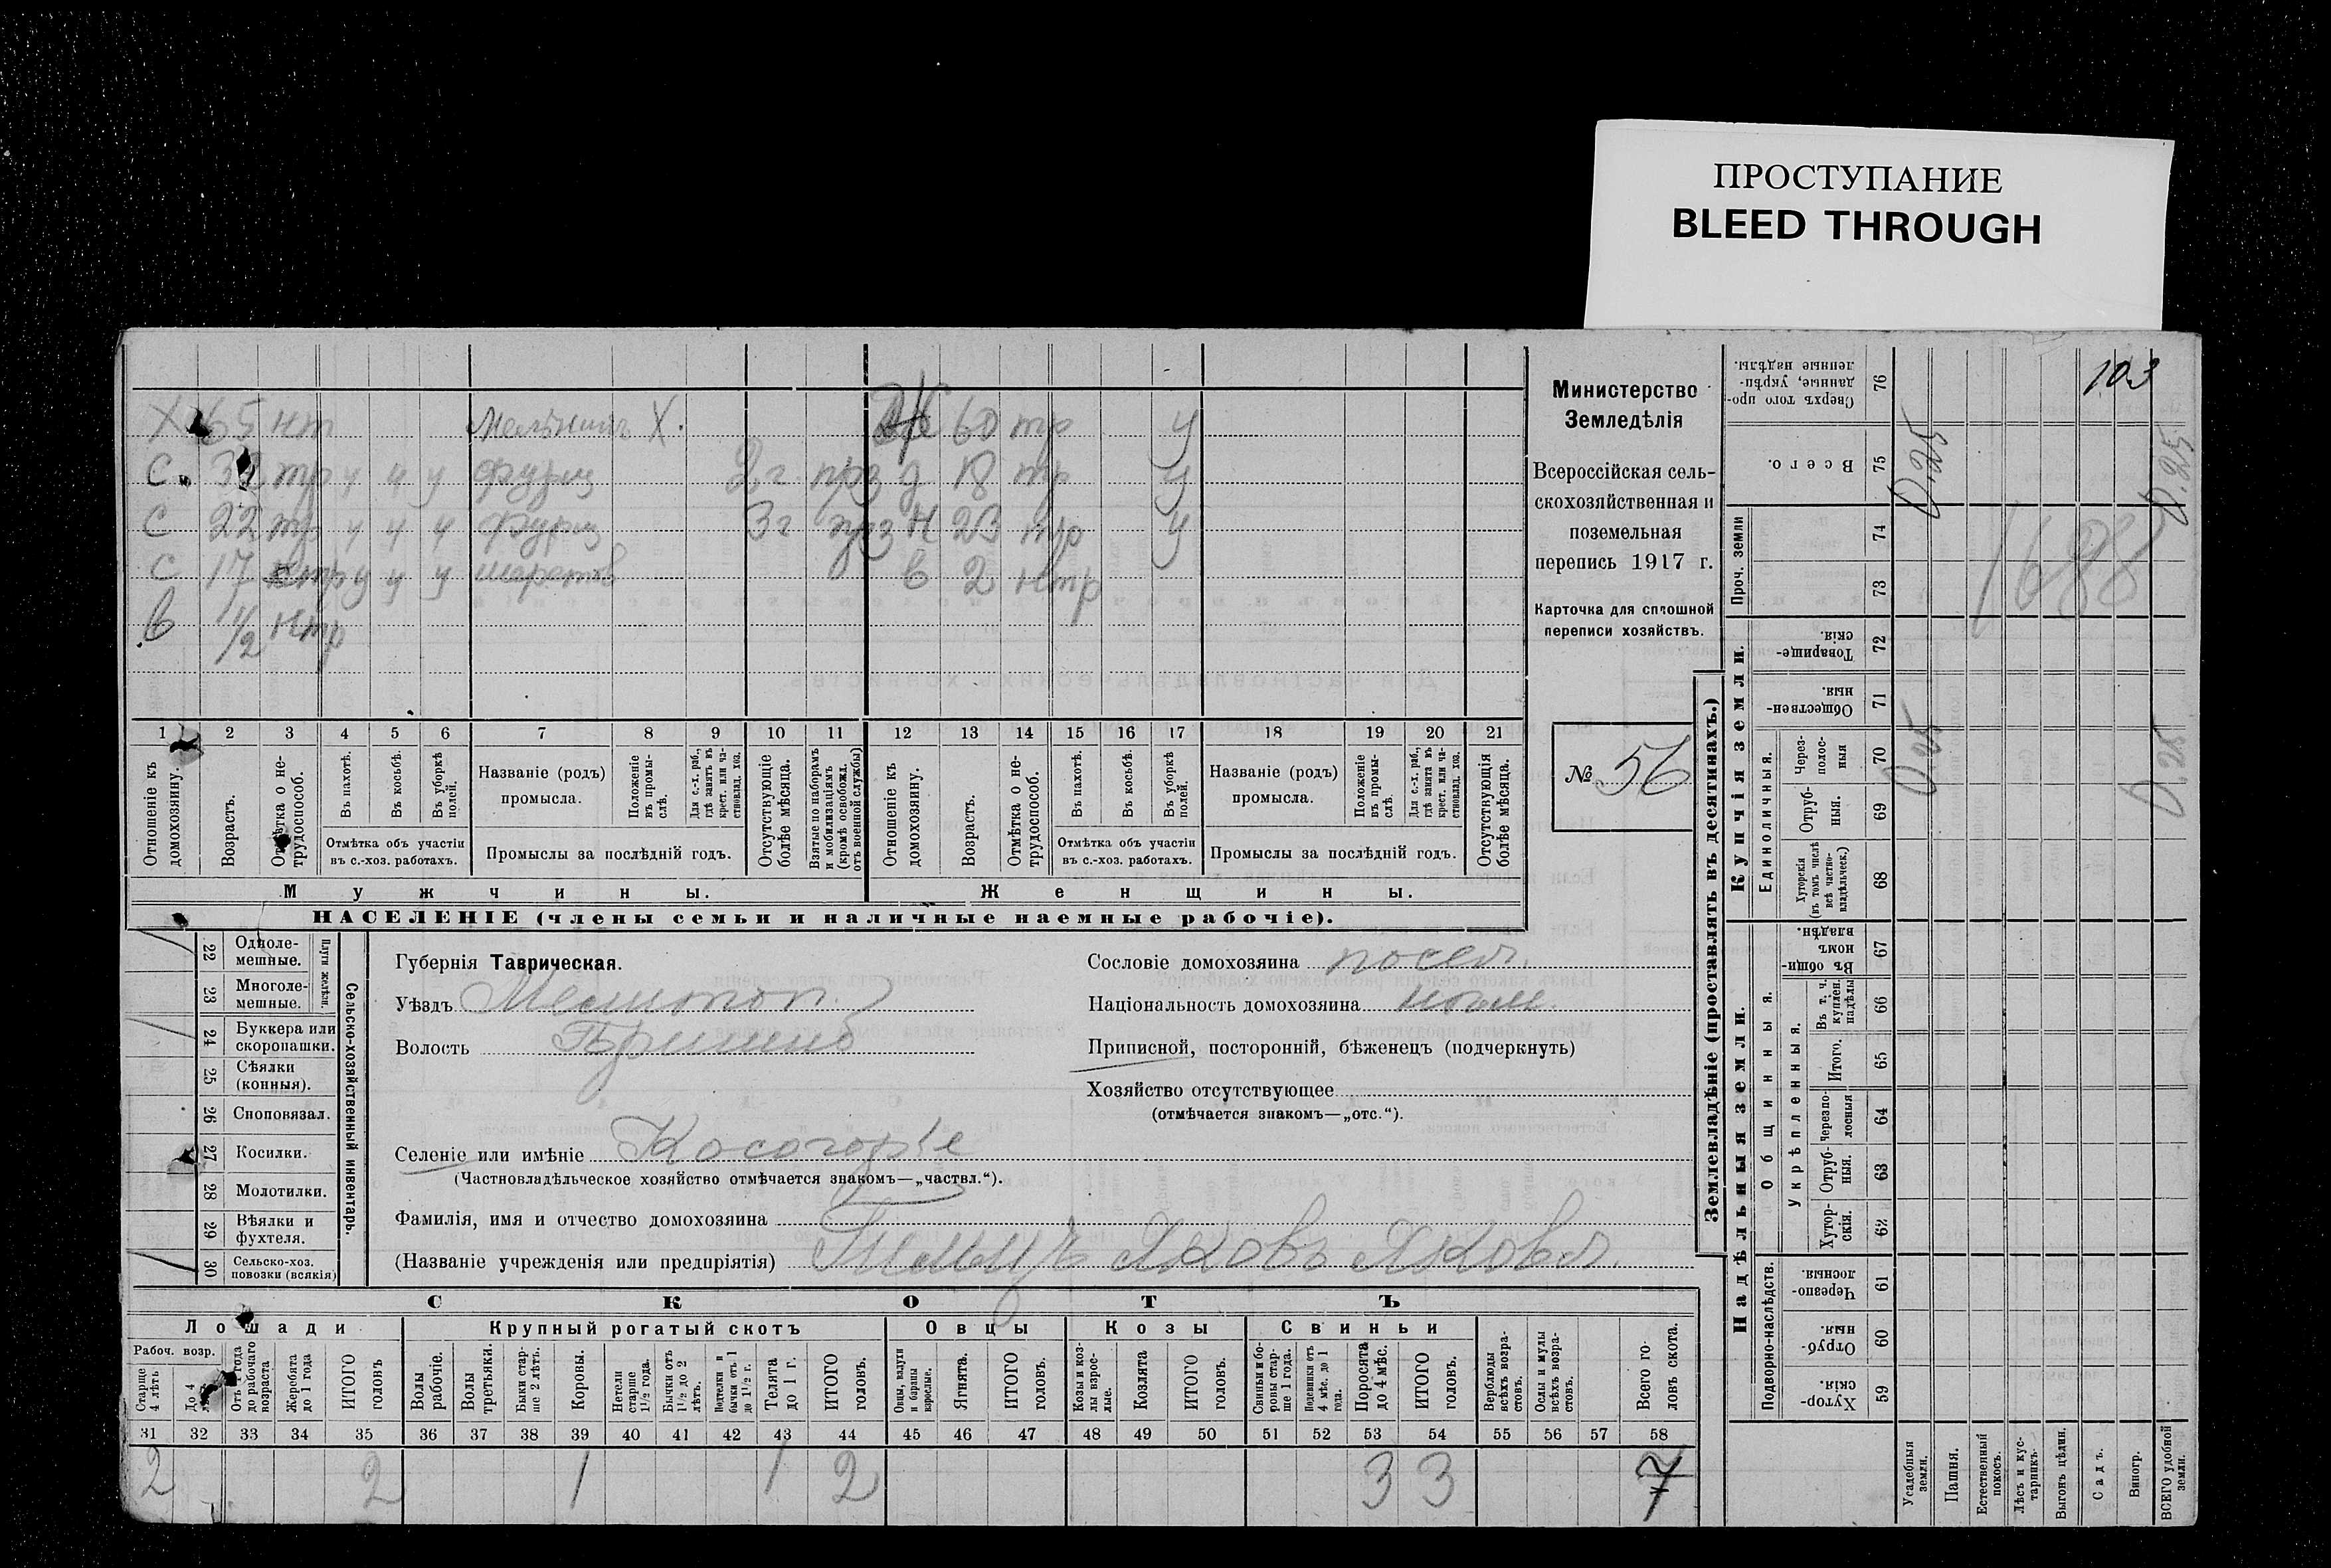 ПРОСТУПАНИЕ
BLEED THROUGH
103
Х 65 нт Мельникъ Х. 60 тр у
С 32 тр у у у 2 г. д 18 тр у
С 22 тр у у у 3 г 23 тр у
С 17 нтр у у у в 2 нтр
в 1 1/2 нтр
1 2 3 4 5 6 7 8 9 10 11 12 13 14 15 16 17 18 19 20 21
Отношеніе къ домохозяину.
Возрастъ.
Отмѣтка о не-трудоспособ.
Въ пахотѣ.
Въ косьбѣ.
Въ уборкѣ полей.
Отмѣтка объ участіи въ с.-хоз. работахъ.
Названіе (родъ) промысла.
Положеніе въ промы-слѣ.
Для с.-х. раб., гдѣ занятъ въ крест. или ча-стновлад. хоз.
Промыслы за послѣдній годъ.
Отсутствующіе болѣе мѣсяца.
Взятые по наборамъ и мобилизаціямъ (кромѣ освобожд. отъ военной службы)
Отношеніе къ домохозяину.
Возрастъ.
Отмѣтка о не-трудоспособ.
Въ пахотѣ.
Въ косьбѣ.
Въ уборкѣ полей.
Отмѣтка объ участіи въ с.-хоз. работахъ.
Названіе (родъ) промысла.
Положеніе въ промы-слѣ.
Для с.-х. раб., гдѣ занята въ крест. или ча-стновлад. хоз.
Промыслы за послѣдній годъ.
Отсутствующія болѣе мѣсяца.
Мужчины.
Женщины.
НАСЕЛЕНІЕ (члены семьи и наличные наемные рабочіе).
Министерство
Земледѣлія
Всероссійская сель-
скохозяйственная и
поземельная
перепись 1917 г.
Карточка для сплошной
переписи хозяйствъ.
№ 56
22 Одноле-мешные.
23 Многоле-мешные.
24 Буккера или скоропашки.
25 Сѣялки (конныя).
26 Сноповязал.
27 Косилки.
28 Молотилки.
29 Вѣялки и фухтеля.
30 Сельско-хоз. повозки (всякія)
Сельско-хозяйственный инвентарь.
Губернія Таврическая.
Уѣздъ Мелитоп.
Волость Пришиб
Селеніе или имѣніе Косогорье
(Частновладѣльческое хозяйство отмѣчается знакомъ—„частвл.“).
Фамилія, имя и отчество домохозяина
(Названіе учрежденія или предпріятія) Яковъ Яковл.
Сословіе домохозяина посел.
Національность домохозяина
Приписной, посторонній, бѣженецъ (подчеркнуть)
Хозяйство отсутствующее
(отмѣчается знакомъ—„отс.“).
СКОТЪ
Лошади Крупный рогатый скотъ Овцы Козы Свиньи
Рабоч. возр.
Старше 4 лѣтъ
До 4
Отъ 1 года до рабочаго возраста
Жеребята до 1 года
ИТОГО головъ
Волы рабочіе.
Волы третьяки.
Быки стар-ше 2 лѣтъ.
Коровы.
Нетели старше 1½ года.
Бычки отъ 1½ до 2 лѣтъ.
Подтелки и бычки отъ 1 до 1½ г.
Телята до 1 г.
ИТОГО головъ.
Овцы, валухи и бараны взрослые.
Ягнята.
ИТОГО головъ.
Козы и коз-лы взрос-лые.
Козлята
ИТОГО головъ.
Свиньи и бо-ровы стар-ше 1 года.
Подсвинки отъ 4 мѣс. до 1 года.
Поросята до 4 мѣс.
ИТОГО головъ.
Верблюды всѣхъ возра-стовъ.
Ослы и мулы всѣхъ возра-стовъ.
Всего го-ловъ скота.
31 32 33 34 35 36 37 38 39 40 41 42 43 44 45 46 47 48 49 50 51 52 53 54 55 56 57 58
2 2 1 1 2 3 3 7
Землевладѣніе (проставлять въ десятинахъ.)
Купчія земли.
Надѣльныя земли.
76 Сверхъ того про-данные, укрѣп-ленные надѣлы.
75 Всего.
Проч. земли
74
73
72 Товарище-скія.
71 Обществен-ныя.
Единоличныя.
70 Через-полос-ныя
69 Отруб-ныя.
68 Хуторскія (въ томъ числѣ всѣ частно-владѣльческ.)
Общинныя.
67 Въ общи-номъ владѣн.
Укрѣпленныя.
66 Въ т. ч. куплен. надѣлы
65 Итого.
64 Черезпо-лосныя
63 Отруб-ныя.
62 Хутор-скія.
Подворно-наслѣдств.
61 Черезпо-лосныя
60 Отруб-ныя.
59 Хутор-скія
0.25 0.25
1688
0.25 0.25
Усадебныя земли.
Пашня.
Естественный покосъ.
Лѣсъ и кус-тарникъ.
Выгонъ цѣлин.
Садъ.
Виногр.
ВСЕГО удобной земли.